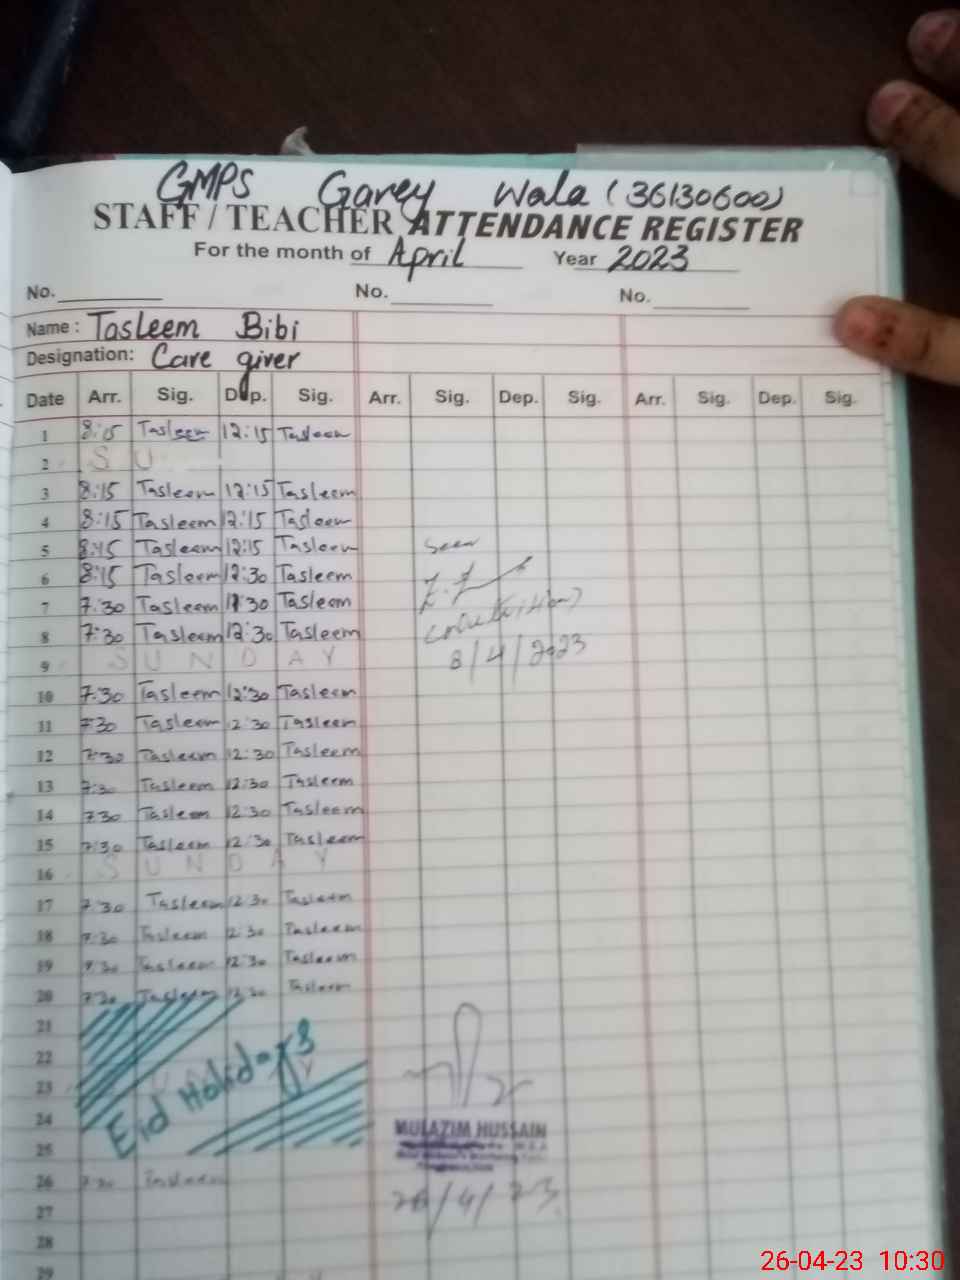 GMPS Garey Wala (36130600)
STAFF / TEACHER ATTENDANCE REGISTER
For the month of April Year 2023
No. No. No.
Name : Tasleem Bibi
Designation: Care giver
Date Arr. Sig. Dep. Sig. Arr. Sig. Dep. Sig. Arr. Sig. Dep. Sig.
1 8:15 Tasleem 12:15 Tasleem
2 S U
3 8:15 Tasleem 12:15 Tasleem
4 8:15 Tasleem 12:15 Tasleem
5 8:15 Tasleem 12:15 Tasleem
Seen
6 8:15 Tasleem 12:30 Tasleem
7 7:30 Tasleem 12:30 Tasleem
8 7:30 Tasleem 12:30 Tasleem
9 S U N D A Y
8/4/2023
10 7:30 Tasleem 12:30 Tasleem
11 7:30 Tasleem 12:30 Tasleem
12 7:30 Tasleem 12:30 Tasleem
13 7:30 Tasleem 12:30 Tasleem
14 7:30 Tasleem 12:30 Tasleem
15 7:30 Tasleem 12:30 Tasleem
16 S U N D A Y
17 7:30 Tasleem 12:30 Tasleem
18 7:30 Tasleem 12:30 Tasleem
19 7:30 Tasleem 12:30 Tasleem
20 7:30 Tasleem 12:30 Tasleem
21
22
23
24
25
Eid Holidays
MULAZIM HUSSAIN
26 7:30 Tasleem
26/4/23
27
28
29
26-04-23 10:30